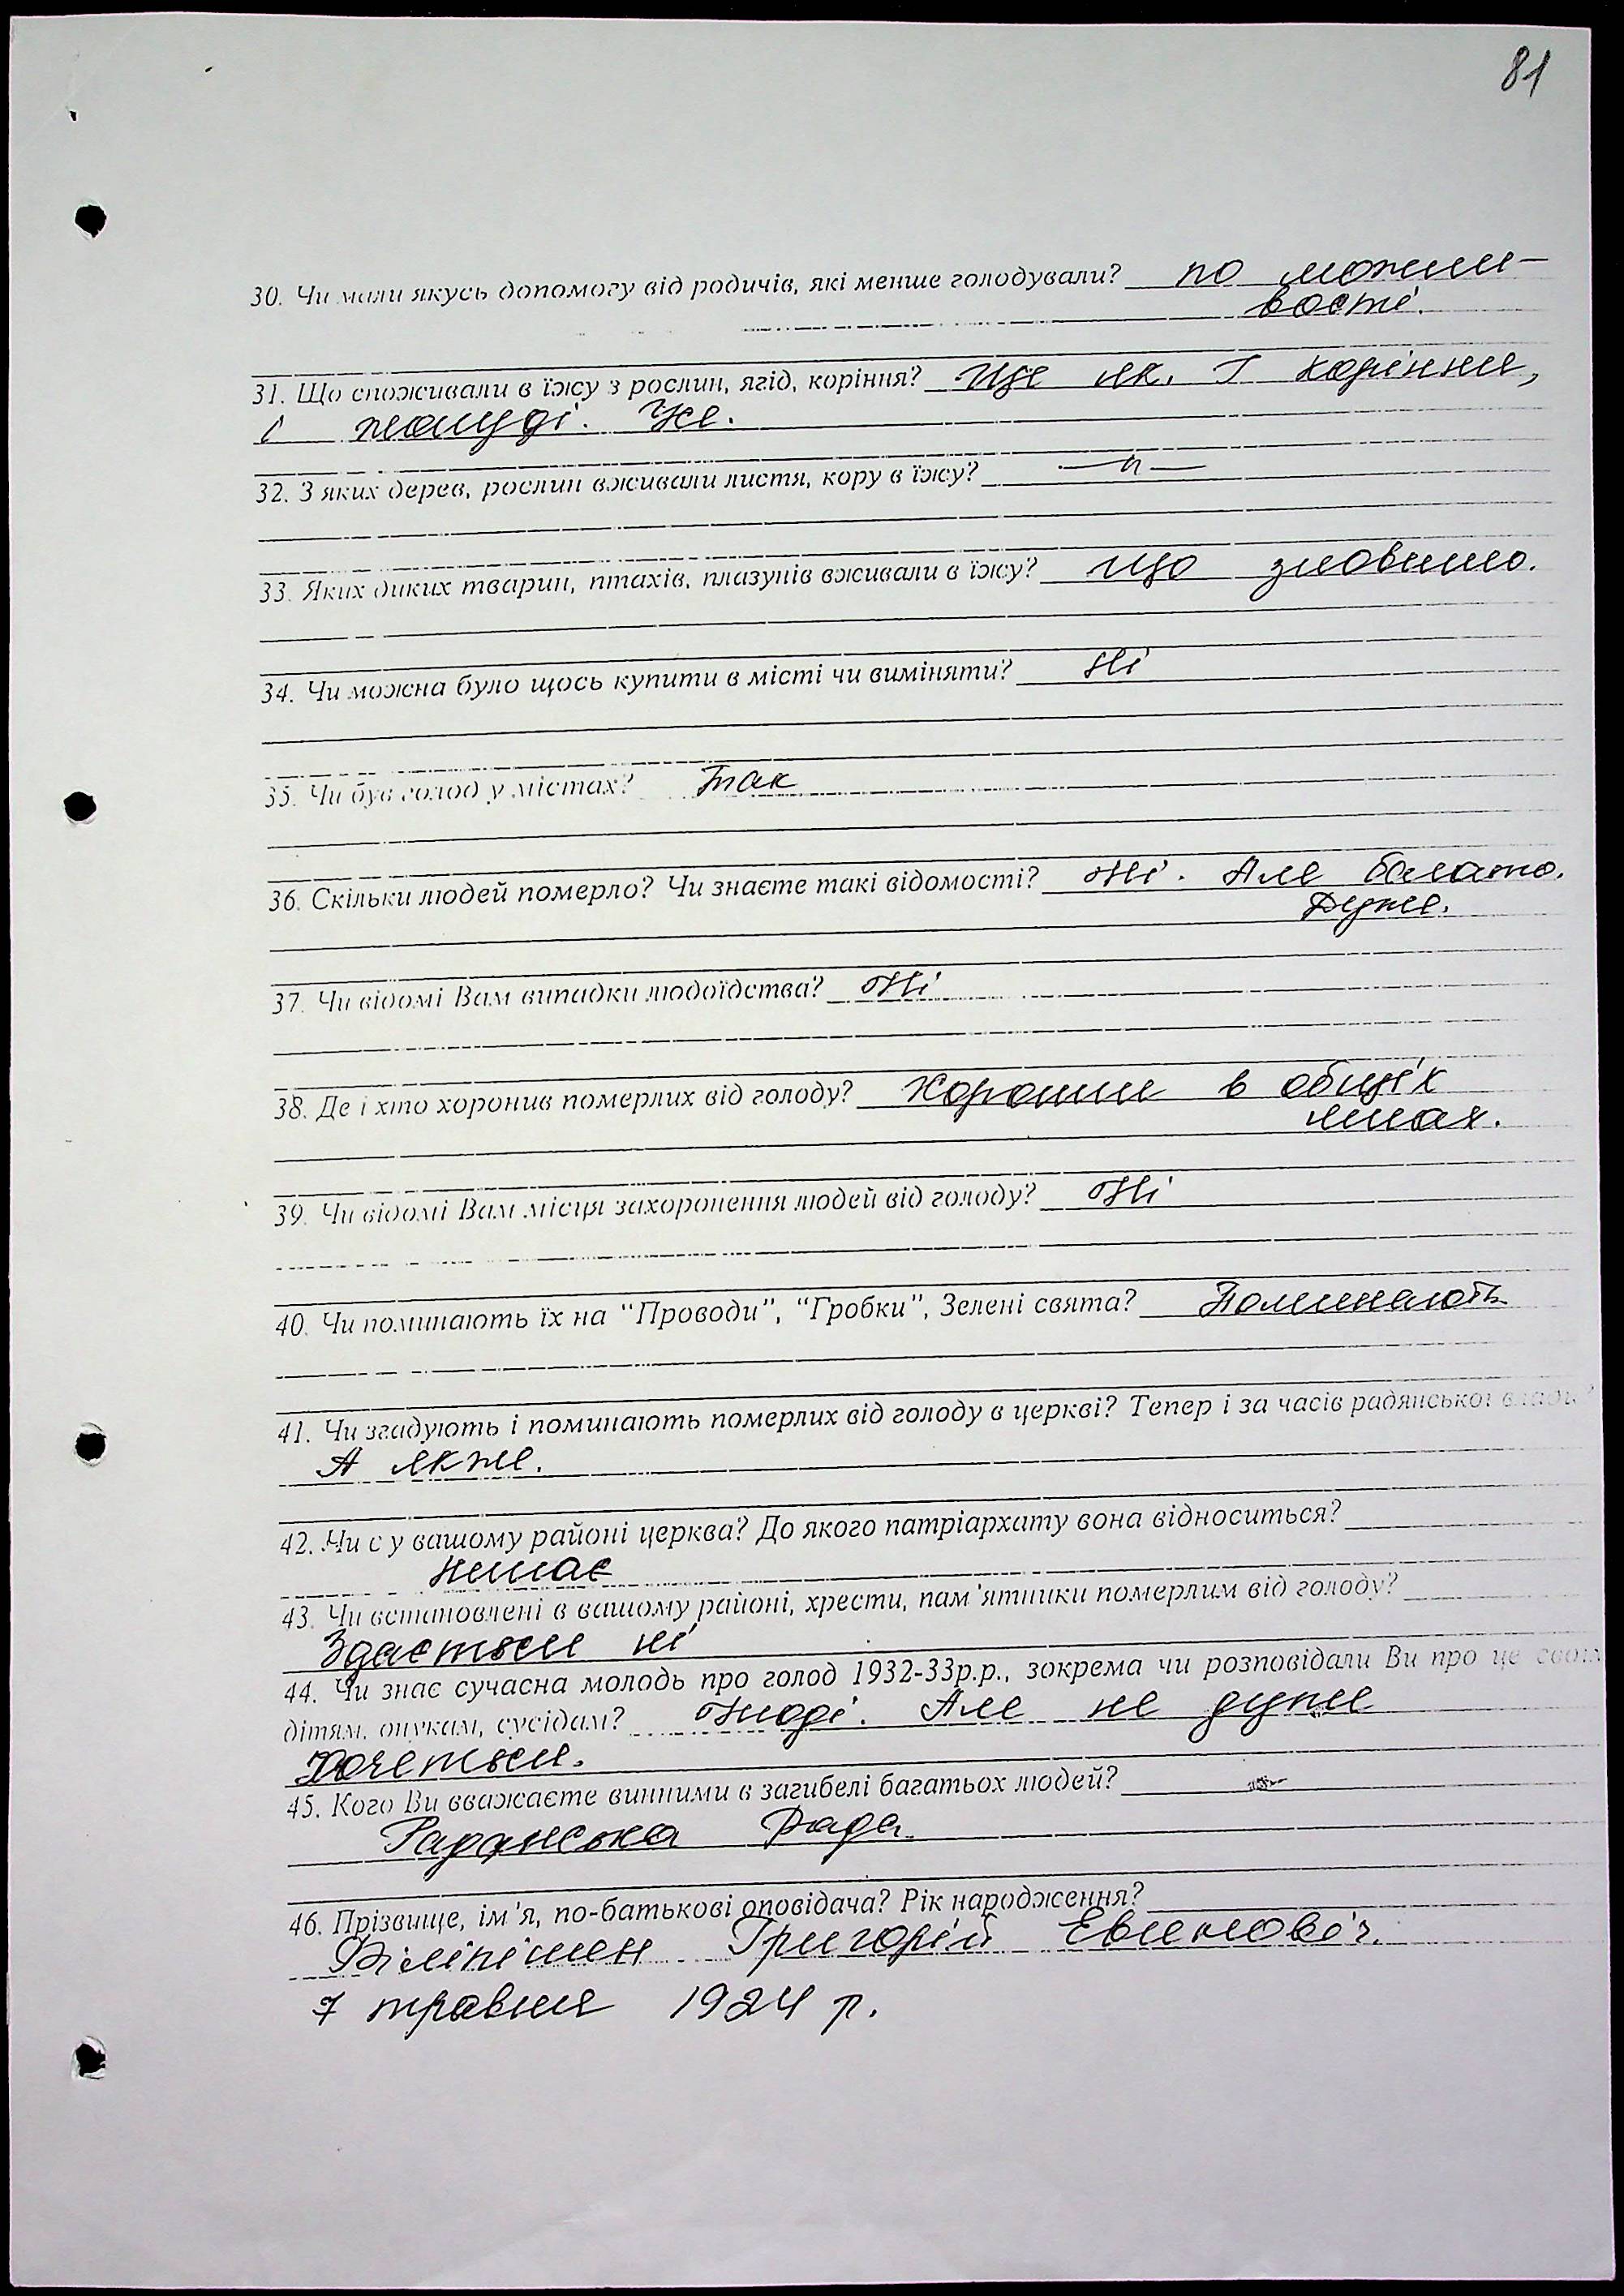 81
30. Чи мали якусь допомогу від родичів, які менше голодували? по можли-
вості.
31. Що споживали в їжу з рослин, ягід, коріння? Ще як. І коріння,
і жолуді. Усе.
32. З яких дерев, рослин вживали листя, кору в їжу? —"—
33. Яких диких тварин, птахів, плазунів вживали в їжу? що зловимо.
34. Чи можна було щось купити в місті чи виміняти? Ні
35. Чи був голод у містах? Так
36. Скільки людей померло? Чи знаєте такі відомості? Ні. Але багато.
Дуже.
37. Чи відомі Вам випадки людоїдства? Ні
38. Де і хто хоронив померлих від голоду? Хоронили в общіх
ямах.
39. Чи відомі Вам місця захоронення людей від голоду? Ні
40. Чи поминають їх на "Проводи", "Гробки", Зелені свята? Поминають
41. Чи згадують і поминають померлих від голоду в церкві? Тепер і за часів радянської влади?
А якже.
42. Чи є у вашому районі церква? До якого патріархату вона відноситься?
Немає
43. Чи встановлені в вашому районі, хрести, пам'ятники померлим від голоду?
Здається ні
44. Чи знає сучасна молодь про голод 1932-33р.р., зокрема чи розповідали Ви про це своїм
дітям, онукам, сусідам? Іноді. Але не дуже
хочеться.
45. Кого Ви вважаєте винними в загибелі багатьох людей?
Радянська Рада
46. Прізвище, ім'я, по-батькові оповідача? Рік народження?
Григорій
7 травня 1924 р.